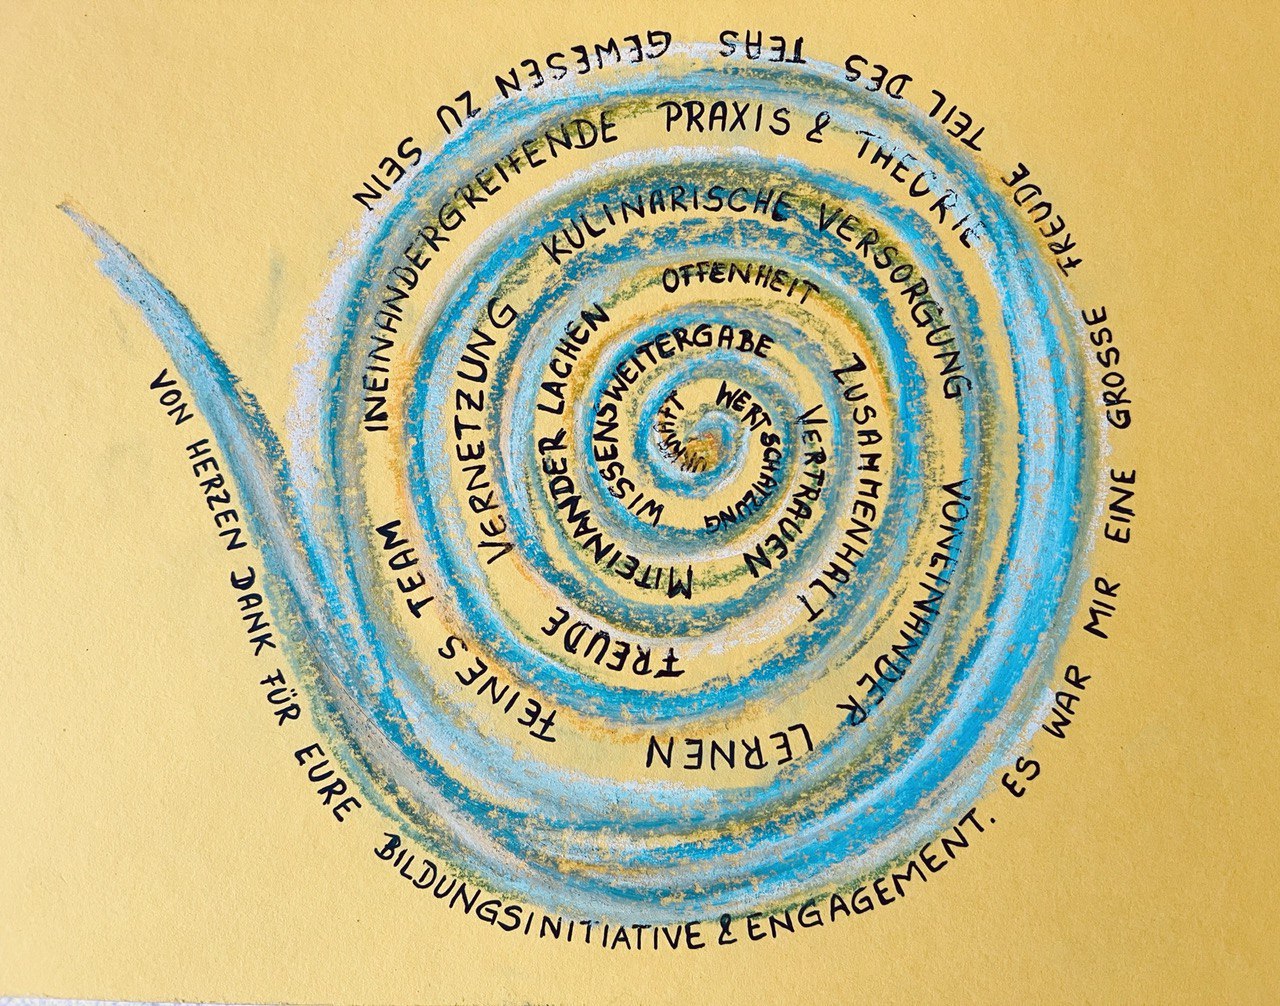 VON HERZEN DANK FÜR EURE BILDUNGSINITIATIVE & ENGAGEMENT. ES WAR MIR EINE GROSSE FREUDE TEIL DES TEAS GEWESEN ZU SEIN
URKRAFT
WERTSCHÄTZUNG
WISSENSWEITERGABE
VERTRAUEN
MITEINANDER LACHEN
OFFENHEIT
ZUSAMMENHALT
FREUDE
VERNETZUNG
KULINARISCHE VERSORGUNG
VONEINANDER LERNEN
FEINES TEAM
INEINANDERGREIFENDE PRAXIS & THEORIE